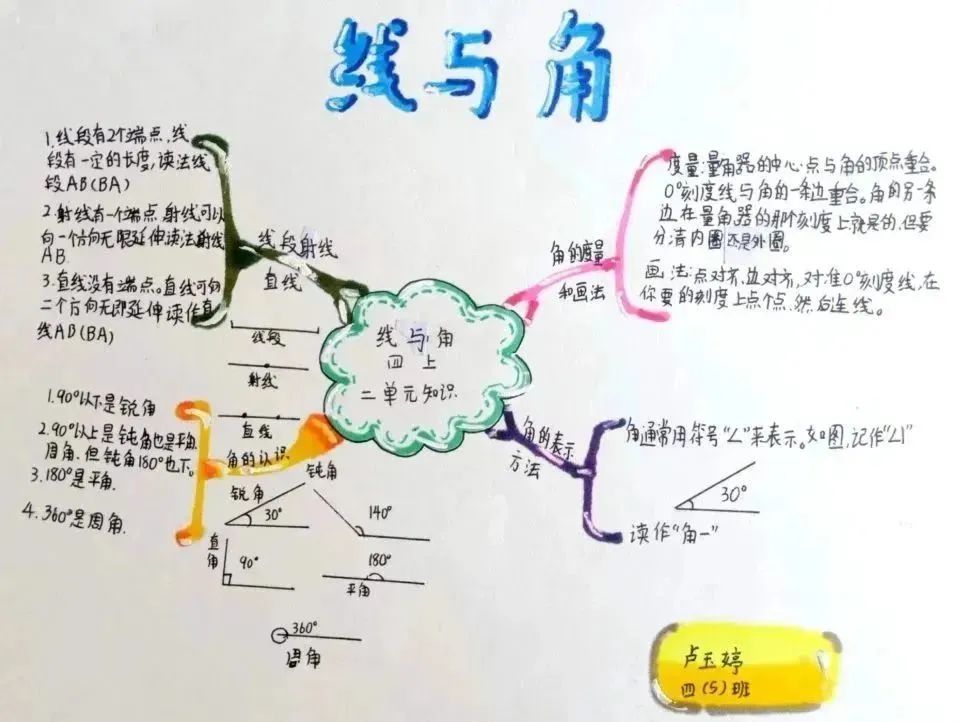 线与角
1.线段有2个端点,线
段有一定的长度,读法线
段AB(BA)
2.射线有一个端点.射线可以
向一个方向无限延伸读法射线
AB.
3.直线没有端点。直线可向
二个方向无即延伸读作直
线AB(BA)
线段射线
直线
线段
射线
直线
线与角
四上
二单元知识
角的度量
和画法
度量:量角器的中心点与角的顶点重合。
0°刻度线与角的一条边重合。角的另一条
边在量角器的那个刻度上就是的.但要
分清内圈还是外圈。
画法:点对齐,边对齐,对准0°刻度线,在
你要的刻度上点个点.然后连线。
1.90°以下是锐角
2.90°以上是钝角也是平角.
周角.但钝角180°也下。
3.180°是平角.
4.360°是周角.
角的认识
钝角
锐角
30°
140°
直角
90°
180°
平角
360°
周角
角的表示
方法
角通常用符号“∠”来表示。如图,记作“∠1”
30°
读作“角一”
卢玉婷
四(5)班